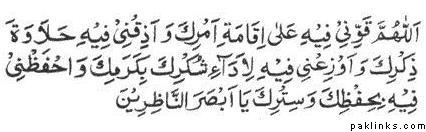 اَللّٰهُمَّ قَوِّنِيْ فِيْهِ عَلٰى اِقَامَةِ اَمْرِكَ وَ اَذِقْنِيْ فِيْهِ حَلَاوَةَ
ذِكْرِكَ وَ اَوْزِعْنِيْ فِيْهِ لِاَدَآءِ شُكْرِكَ بِكَرَمِكَ وَ احْفَظْنِيْ
فِيْهِ بِحِفْظِكَ وَ سِتْرِكَ يَا اَبْصَرَ النَّاظِرِيْنَ
paklinks.com